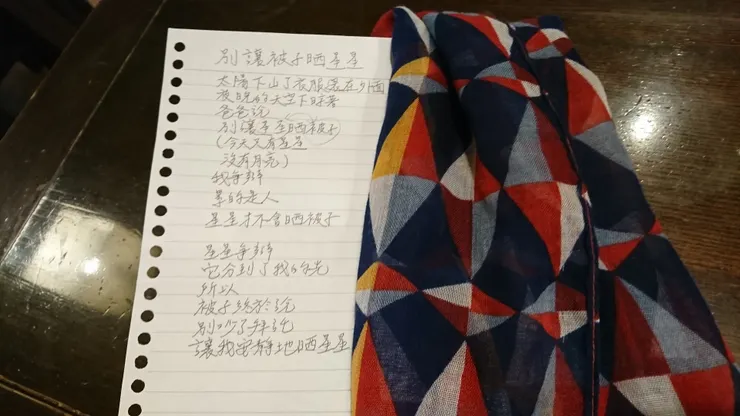 別讓被子晒星星
太陽下山了衣服還在外面
傍晚的天空下睡著
爸爸說
別讓星星晒被子
(今天又有星星
沒有月亮)
我爭辯
累的是人
星星才不會晒被子
星星爭辯
它分到了我的光
所以
被子終於說
別吵了拜託
讓我安靜地晒星星